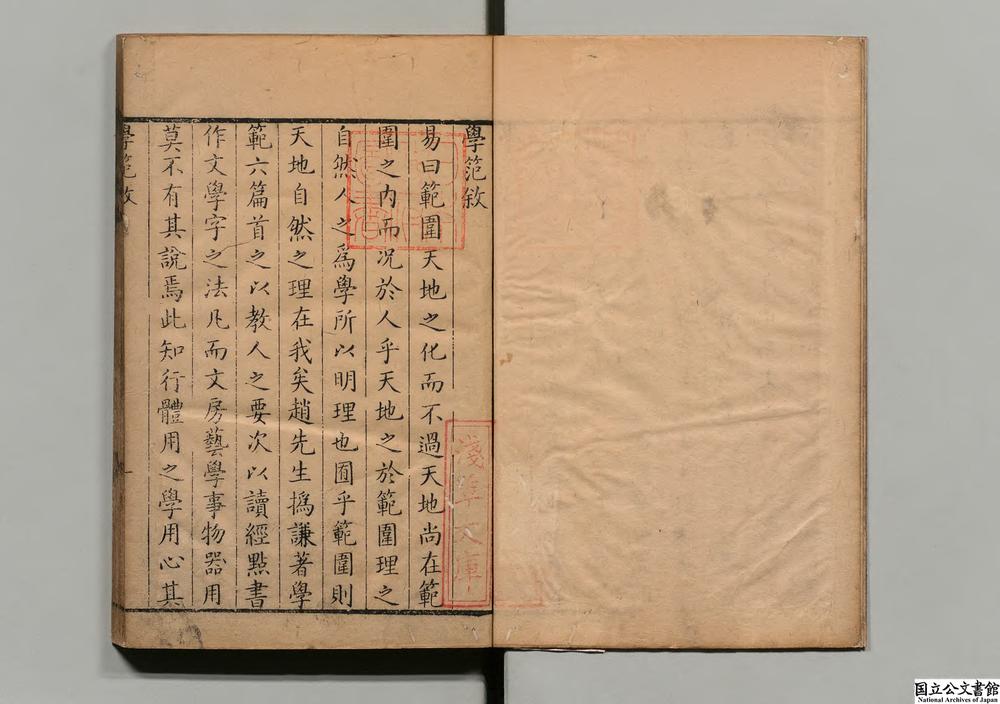 學范敘
易曰範圍天地之化而不過天地尚在範
圍之内而况於人乎天地之於範圍理之
自然人之爲學所以明理也囿乎範圍則
天地自然之理在我矣趙先生撝謙著學
範六篇首之以教人之要次以讀經㸃書
作文學字之法凡而文房藝學事物器用
莫不有其說焉此知行體用之學用心其
學范敘
一
淺草文庫
国立公文書館
National Archives of Japan